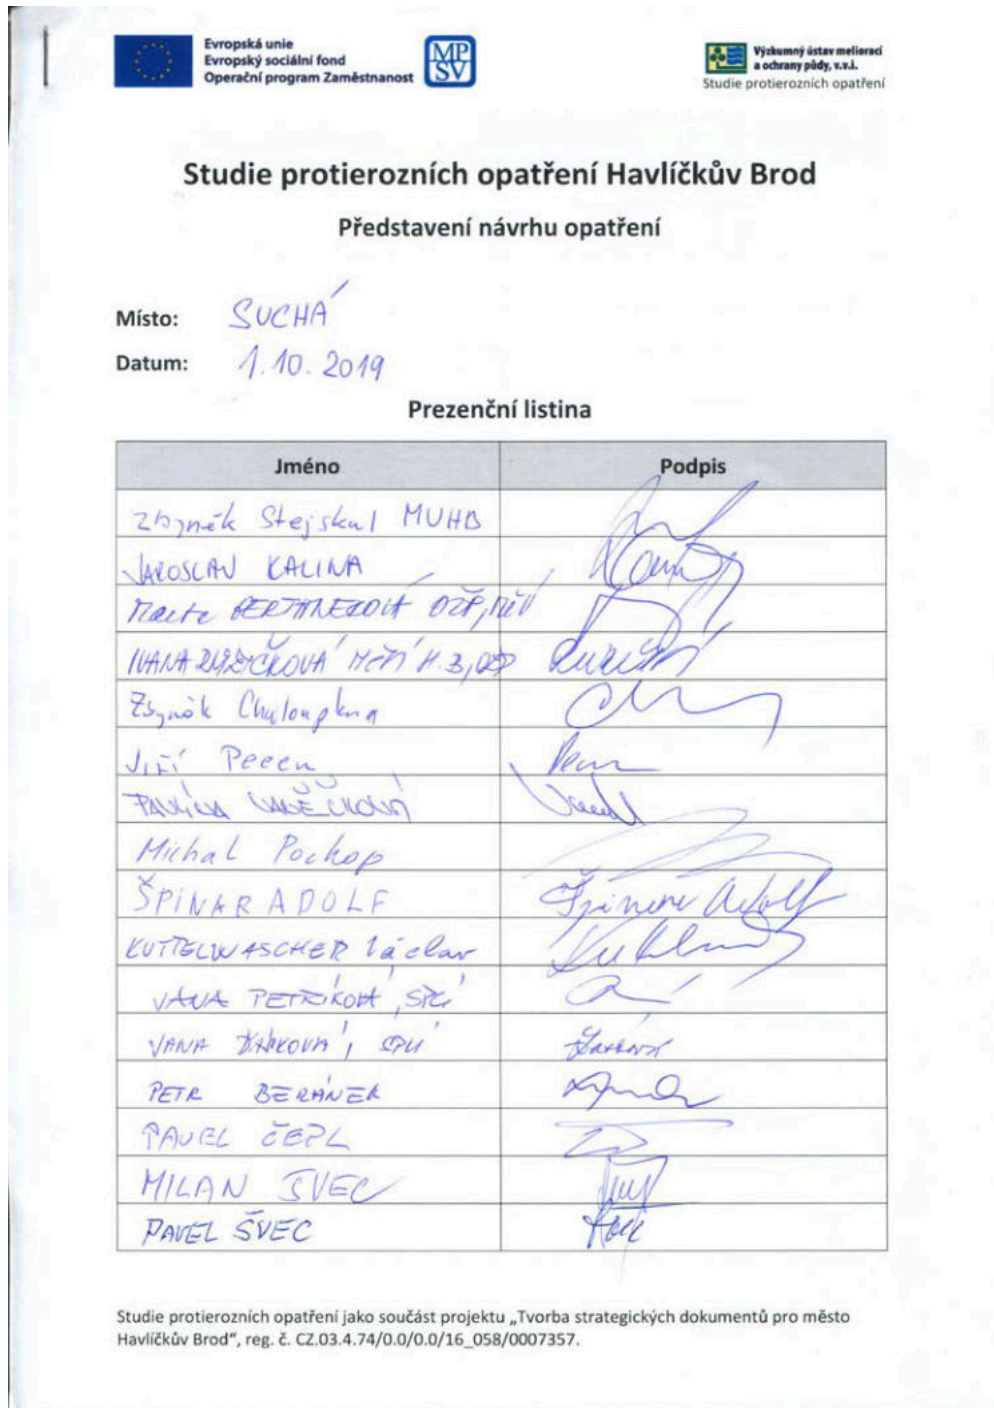 Evropská unie
Evropský sociální fond
Operační program Zaměstnanost
MP
SV
Výzkumný ústav meliorací
a ochrany půdy, v.v.i.
Studie protierozních opatření
Studie protierozních opatření Havlíčkův Brod
Představení návrhu opatření
Místo: SUCHÁ
Datum: 1.10.2019
Prezenční listina
Jméno Podpis
Zbyněk Stejskal MUHB
JAROSLAV KALINA
IVANA
Zbyněk Chaloupka
Jiří Pecen
PAVLÍNA VANĚČKOVÁ
Michal Pochop
ŠPINAR ADOLF Špinar Adolf
KUTTELWASCHER Václav
PETŘÍKOVÁ, SPÚ
SPÚ
PETR BERÁNEK
PAVEL ČEPL
MILAN ŠVEC
PAVEL ŠVEC
Studie protierozních opatření jako součást projektu „Tvorba strategických dokumentů pro město
Havlíčkův Brod“, reg. č. CZ.03.4.74/0.0/0.0/16_058/0007357.